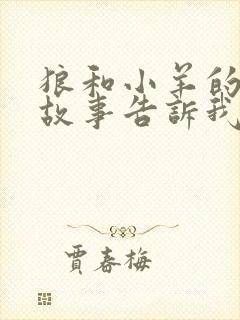 狼和小羊的
故事告訴我
賈春梅